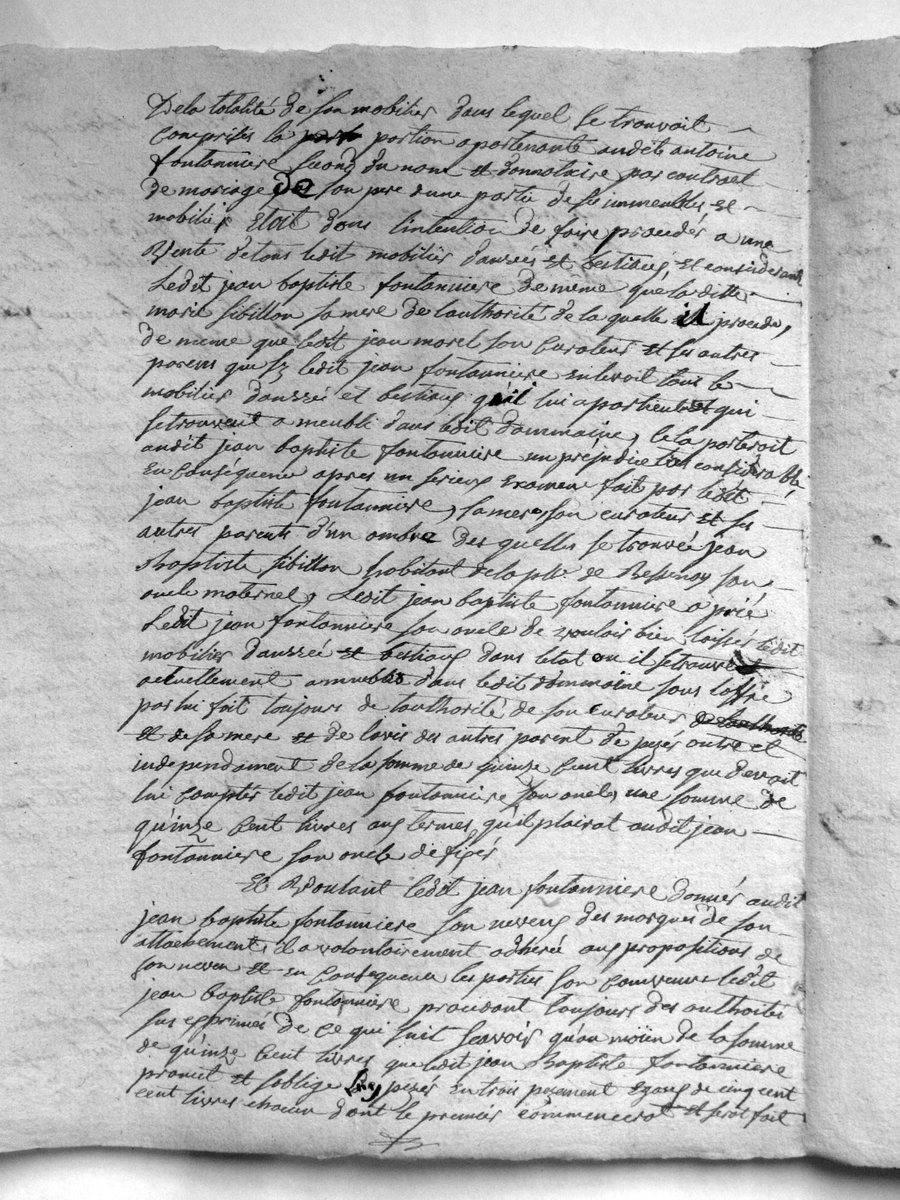 De la totalité de son mobilier dans lequel se trouvoit
comprises la portion apartenante audit antoine
fontanniere second du nom et donnataire par contract
de mariage de son pere dune partie de ses immeubles et
mobilier Etoit dans lintention de faire proceder a une
Vente de tous ledit mobilier danrées et bestiaux, et considerant
Ledit jean baptiste fontanniere de meme que laditte
marie sibillon sa mere de lauthorité de la quelle il procede,
de meme que ledit jean morel son curateur et ses autres
parens que sy ledit jean fontanniere enlevoit tous le
mobilier danrée et bestiaux qui lui apartient et qui
se trouvent a meubli dans ledit dommaine, cela porteroit
audit jean baptiste fontanniere un prejudice considerable
En consequence apres un serieux examen fait par ledit
jean baptiste fontanniere, sa mere son curateur et ses
autres parents d'un ombre des quelles se trouvée jean
Baptiste sibillon habitant de la de Bessenay son
oncle maternel, Ledit jean baptiste fontanniere a prié
Ledit jean fontanniere son oncle de vouloir bien laissés ledit
mobilier danrée et bestiaux dans letat ou il se trouve
actuellement ammeublé dans ledit dommaine sous loffre
par lui fait toujours de lauthorité de son curateur de lauthorité
et de sa mere et de lavis des autres parent de payés outre et
independament de la somme de quinze cent livres que devoit
lui comptés ledit jean fontanniere son oncle, une somme de
quinze cent livres aux termes quil plairat audit jean
fontanniere son oncle de fixés
Et Voulant ledit jean fontanniere donnés audit
jean baptiste fontanniere son neveux des marques de son
attachement, il a volontairement adheré aux propositions de
son neveu et en consequence les parties son convenues ledit
jean baptiste fontanniere procedant toujours des authorités
sus exprimés de ce qui suit scavoir qu'au moiien de la somme
de quinze cent livres que ledit jean Baptiste fontanniere
promet et soblige luy payer en trois payement egaux de cinq cent
cent livres chacun dont le premier commencerat et serat fait